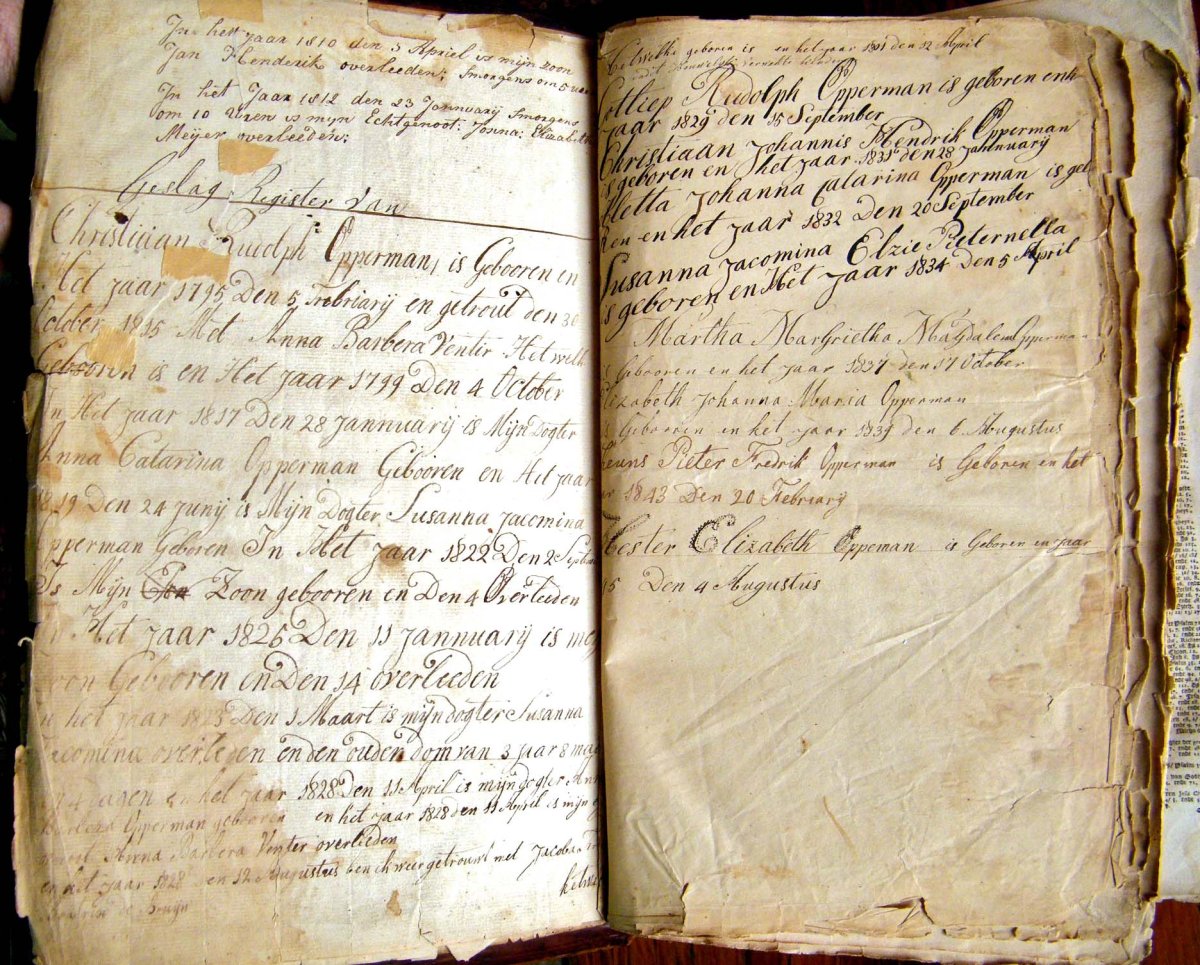 In het jaar 1810 den 5 Apriel is mijn zoon
Jan Henderik overleeden: Smorgens om 5 uuren
In het Jaar 1812 den 23 Jannuarij Smorgens
om 10 Uren is mijn Echtgenoot: Janna: Elizabeth
Meijer overleeden:
Geslag Register van
Christiaan Rudolph Opperman, is Gebooren en
Het jaar 1795 Den 5 Frebriarij en getrout den 30
October 1815 Met Anna Barbera Venter Het welk
Gebooren is en Het jaar 1799 Den 4 October
In Het jaar 1817 Den 28 jannuarij is Mijn Dogter
Anna Catarina Opperman Gebooren en Het jaar
1819 Den 24 junij is Mijn Dogter Susanna Jacomina
Opperman Geboren In Het jaar 1822 Den 2 Septem
Is Mijn Zoon gebooren en Den 4 Overleeden
In Het jaar 1825 Den 11 jannuarij is mej
zoon Gebooren en Den 14 overleeden
en het jaar 1823 Den 1 Maart is mijn dogter Susanna
Jacomina overleden en den ouden dom van 3 jaar 8 ma
4 dagen en het jaar 1828 Den 11 April is mijn dogter An
Barbera Opperman gebooren en het jaar 1828 den 11 April is mijn
Anna Barbara Venter overleeden
en het jaar 1828 den 12 Augustus ben ik weer getrouwt met Jacoba
de Bruijn
Hetwelke geboren is en het jaar 1801 den 12 April
Gotliep Rudolph Opperman is geboren en h
jaar 1829 den 15 September
Christiaan Johannis Hendrik Opperman
is geboren en het jaar 1831 den 28 jannuarij
Aletta Johanna Catarina Opperman is geb
Ren en het jaar 1832 Den 20 September
Susanna Jacomina Elzie Pieternella
is geboren en Het jaar 1834 Den 5 April
Martha Margrietha Magdalena Opperman
is Gebooren en het jaar 1837 den 17 October
Elizabeth Johanna Maria Opperman
is Gebooren en het jaar 1839 den 6 Augustus
Teuns Pieter Fredrik Opperman is Geboren en het
jaar 1843 Den 20 February
Hester Elizabeth Oppeman is Geboren en jaar
45 Den 4 Augustus